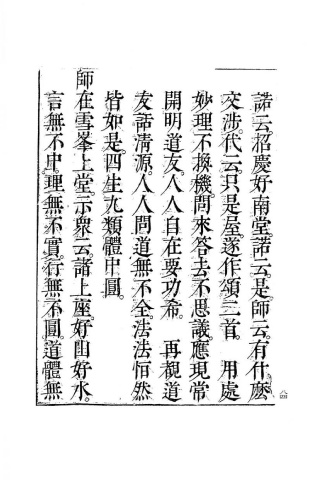 諾云。招慶好南堂。諾云。是。師云。有什麽
交涉。代云。只是屋。遂作頌三首。　用處
妙理不換機。問來答去不思議。應現常
開明道友。人人自在要功希。　再覩道
友話清源。人人問道無不全。法法恒然
皆如是。四生九類體中圓。
師在雪峯上堂。示眾云。諸上座。好田好水。
言無不中。理無不實。行無不圓。道體無